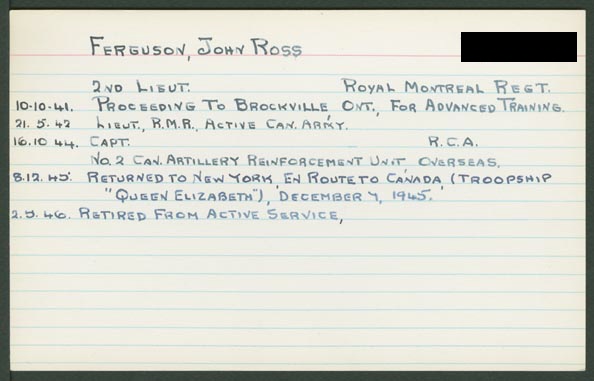 Ferguson, John Ross
2nd Lieut. Royal Montreal Regt.
10-10-41. Proceeding To Brockville Ont., For Advanced Training.
21.5.42 Lieut., R.M.R., Active Can. Army.
16.10 44. Capt. R.C.A.
No. 2 Can. Artillery Reinforcement Unit, Overseas.
8.12.45. Returned to New York, En Route to Canada, (Troopship
"Queen Elizabeth"), December 7, 1945.
2.5.46. Retired From Active Service,